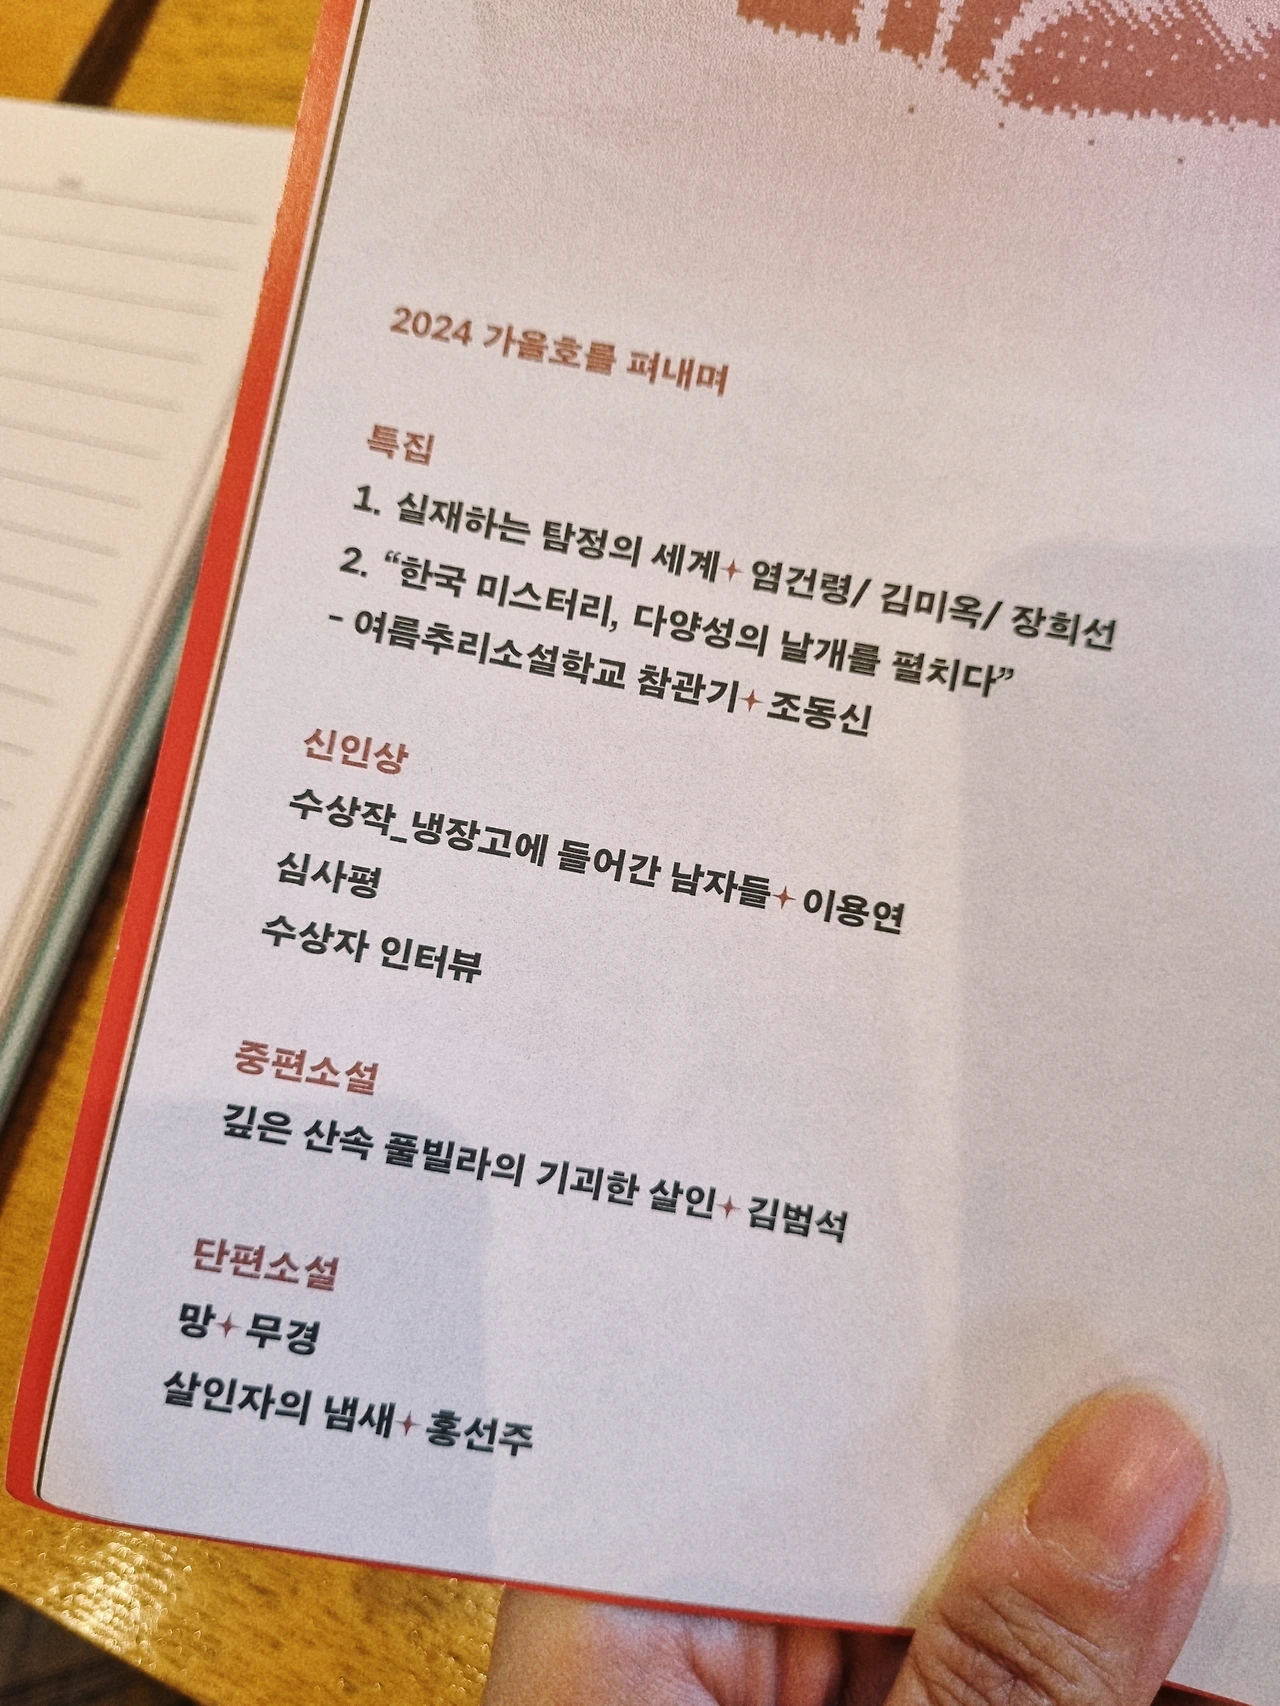 2024 가을호를 펴내며
특집
1. 실재하는 탐정의 세계✦염건령/ 김미옥/ 장희선
2. “한국 미스터리, 다양성의 날개를 펼치다”
- 여름추리소설학교 참관기✦조동신
신인상
수상작_냉장고에 들어간 남자들✦이용연
심사평
수상자 인터뷰
중편소설
깊은 산속 풀빌라의 기괴한 살인✦김범석
단편소설
망✦무경
살인자의 냄새✦홍선주